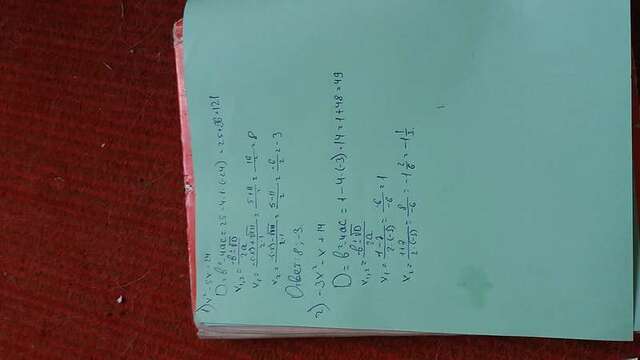 1) x² - 5x = 24
D = b² - 4ac = 25 - 4·1·(-24) = 25 + 96 = 121
x₁,₂ = (-b ± √D)/2a
x₁ = (-(-5) + √121)/(2·1) = (5 + 11)/2 = 16/2 = 8
x₂ = (-(-5) - √121)/(2·1) = (5 - 11)/2 = -6/2 = -3
Ответ: 8; -3.
2) -3x² - x + 14
D = b² - 4ac = 1 - 4·(-3)·14 = 1 + 48 = 49
x₁,₂ = (-b ± √D)/2a
x₁ = (1 - 7)/(2·(-3)) = -6/-6 = 1
x₂ = (1 + 7)/(2·(-3)) = 8/-6 = -1 2/6 = -1 1/3